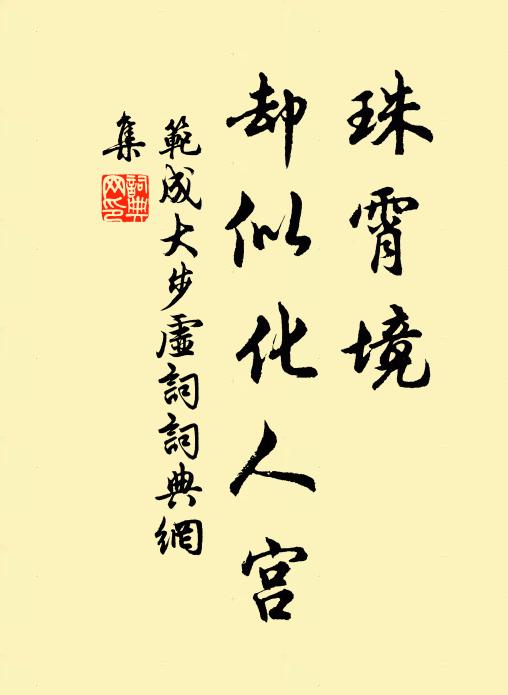 珠霄境
却似化人宫
範成大步虛詞詞典網
集
詞典
网印